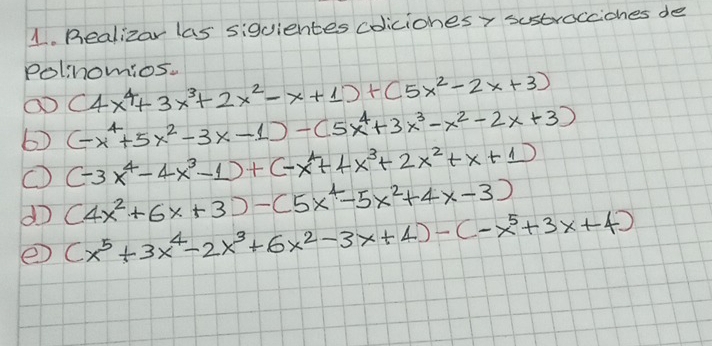 1. Realizar las siguientes adiciones y sustracciones de
Polinomios.
a) (4x⁴+3x³+2x²-x+1)+(5x²-2x+3)
b) (-x⁴+5x²-3x-1)-(5x⁴+3x³-x²-2x+3)
c) (-3x⁴-4x³-1)+(-x⁴+4x³+2x²+x+1)
d) (4x²+6x+3)-(5x⁴-5x²+4x-3)
e) (x⁵+3x⁴-2x³+6x²-3x+4)-(-x⁵+3x+4)